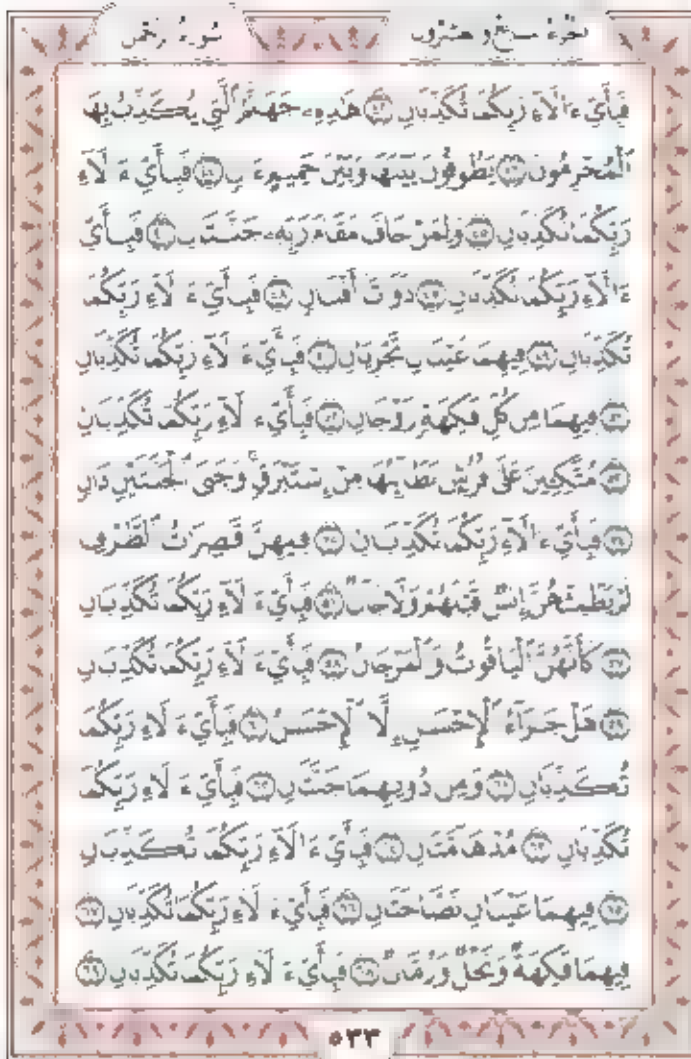 سُورَةُ الرَّحْمَٰن الجُزْءُ السَّابِعُ وَالعِشْرُونَ
فَبِأَيِّ ءَالَآءِ رَبِّكُمَا تُكَذِّبَانِ ﴿٤٢﴾ هَٰذِهِۦ جَهَنَّمُ ٱلَّتِي يُكَذِّبُ بِهَا
ٱلْمُجْرِمُونَ ﴿٤٣﴾ يَطُوفُونَ بَيْنَهَا وَبَيْنَ حَمِيمٍ ءَانٍ ﴿٤٤﴾ فَبِأَيِّ ءَالَآءِ
رَبِّكُمَا تُكَذِّبَانِ ﴿٤٥﴾ وَلِمَنْ خَافَ مَقَامَ رَبِّهِۦ جَنَّتَانِ ﴿٤٦﴾ فَبِأَيِّ
ءَالَآءِ رَبِّكُمَا تُكَذِّبَانِ ﴿٤٧﴾ ذَوَاتَآ أَفْنَانٍ ﴿٤٨﴾ فَبِأَيِّ ءَالَآءِ رَبِّكُمَا
تُكَذِّبَانِ ﴿٤٩﴾ فِيهِمَا عَيْنَانِ تَجْرِيَانِ ﴿٥٠﴾ فَبِأَيِّ ءَالَآءِ رَبِّكُمَا تُكَذِّبَانِ
﴿٥١﴾ فِيهِمَا مِن كُلِّ فَٰكِهَةٍ زَوْجَانِ ﴿٥٢﴾ فَبِأَيِّ ءَالَآءِ رَبِّكُمَا تُكَذِّبَانِ
﴿٥٣﴾ مُتَّكِـِٔينَ عَلَىٰ فُرُشٍۭ بَطَآئِنُهَا مِنْ إِسْتَبْرَقٍ ۚ وَجَنَى ٱلْجَنَّتَيْنِ دَانٍ
﴿٥٤﴾ فَبِأَيِّ ءَالَآءِ رَبِّكُمَا تُكَذِّبَانِ ﴿٥٥﴾ فِيهِنَّ قَٰصِرَٰتُ ٱلطَّرْفِ
لَمْ يَطْمِثْهُنَّ إِنسٌ قَبْلَهُمْ وَلَا جَآنٌّ ﴿٥٦﴾ فَبِأَيِّ ءَالَآءِ رَبِّكُمَا تُكَذِّبَانِ
﴿٥٧﴾ كَأَنَّهُنَّ ٱلْيَاقُوتُ وَٱلْمَرْجَانُ ﴿٥٨﴾ فَبِأَيِّ ءَالَآءِ رَبِّكُمَا تُكَذِّبَانِ
﴿٥٩﴾ هَلْ جَزَآءُ ٱلْإِحْسَٰنِ إِلَّا ٱلْإِحْسَٰنُ ﴿٦٠﴾ فَبِأَيِّ ءَالَآءِ رَبِّكُمَا
تُكَذِّبَانِ ﴿٦١﴾ وَمِن دُونِهِمَا جَنَّتَانِ ﴿٦٢﴾ فَبِأَيِّ ءَالَآءِ رَبِّكُمَا
تُكَذِّبَانِ ﴿٦٣﴾ مُدْهَآمَّتَانِ ﴿٦٤﴾ فَبِأَيِّ ءَالَآءِ رَبِّكُمَا تُكَذِّبَانِ
﴿٦٥﴾ فِيهِمَا عَيْنَانِ نَضَّاخَتَانِ ﴿٦٦﴾ فَبِأَيِّ ءَالَآءِ رَبِّكُمَا تُكَذِّبَانِ ﴿٦٧﴾
فِيهِمَا فَٰكِهَةٌ وَنَخْلٌ وَرُمَّانٌ ﴿٦٨﴾ فَبِأَيِّ ءَالَآءِ رَبِّكُمَا تُكَذِّبَانِ ﴿٦٩﴾
٥٣٣